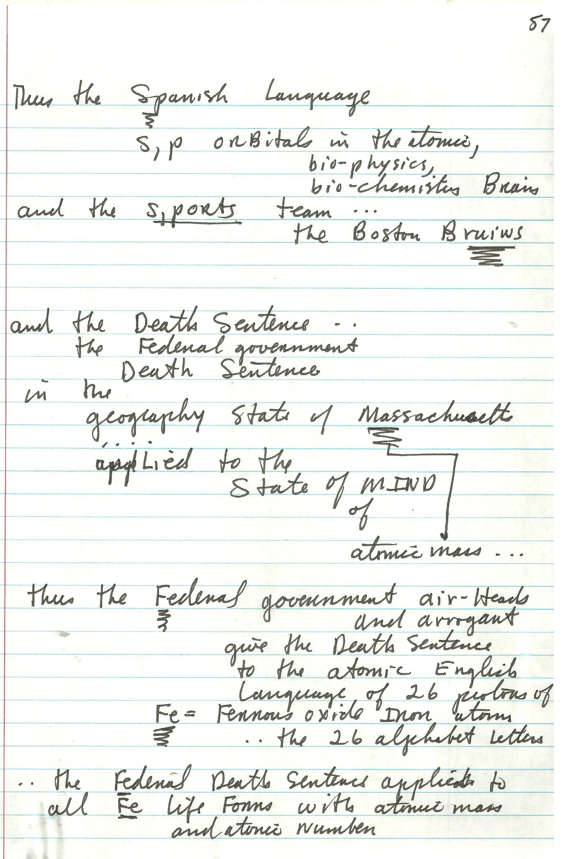 57
Thus the Spanish Language
S, p orBitals in the atomic,
bio-physics,
bio-chemistry Brain
and the s,ports team ...
the Boston Bruiws
and the Death Sentence ..
the Federal government
Death Sentence
in the
geography State of Massachusetts
applied to the
State of MIND
of
atomic mass ...
thus the Federal government air-Heads
and arrogant
give the Death Sentence
to the atomic English
Language of 26 protons of
Fe = Ferrous oxide Iron atom
.. the 26 alphabet letters
.. the Federal Death Sentence applied to
all Fe life Forms with atomic mass
and atomic number